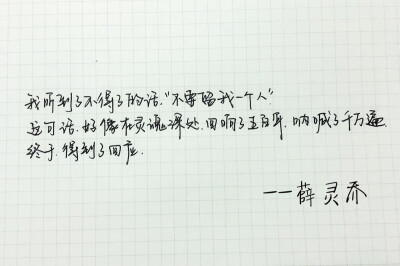 我听到了不得了的话，“不要留我一个人”
这句话，好像在灵魂深处，回响了五百年，呐喊了千万遍，
终于，得到了回应.
——薛灵乔